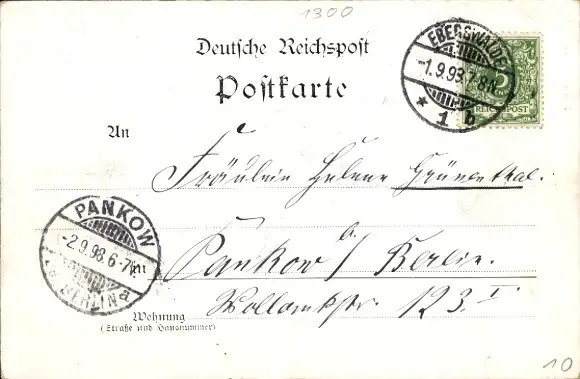 1300
Deutsche Reichspost
Postkarte
EBERSWALDE
-1.9.98.7-8N
* 1 b
5
REICHSPOST
An
Fräulein Helene Grünenthal.
Pankow b/ Berlin.
123 I
PANKOW
-2.9.98.6-7
BERLIN a
in
Wohnung
(Straße und Hausnummer)
10